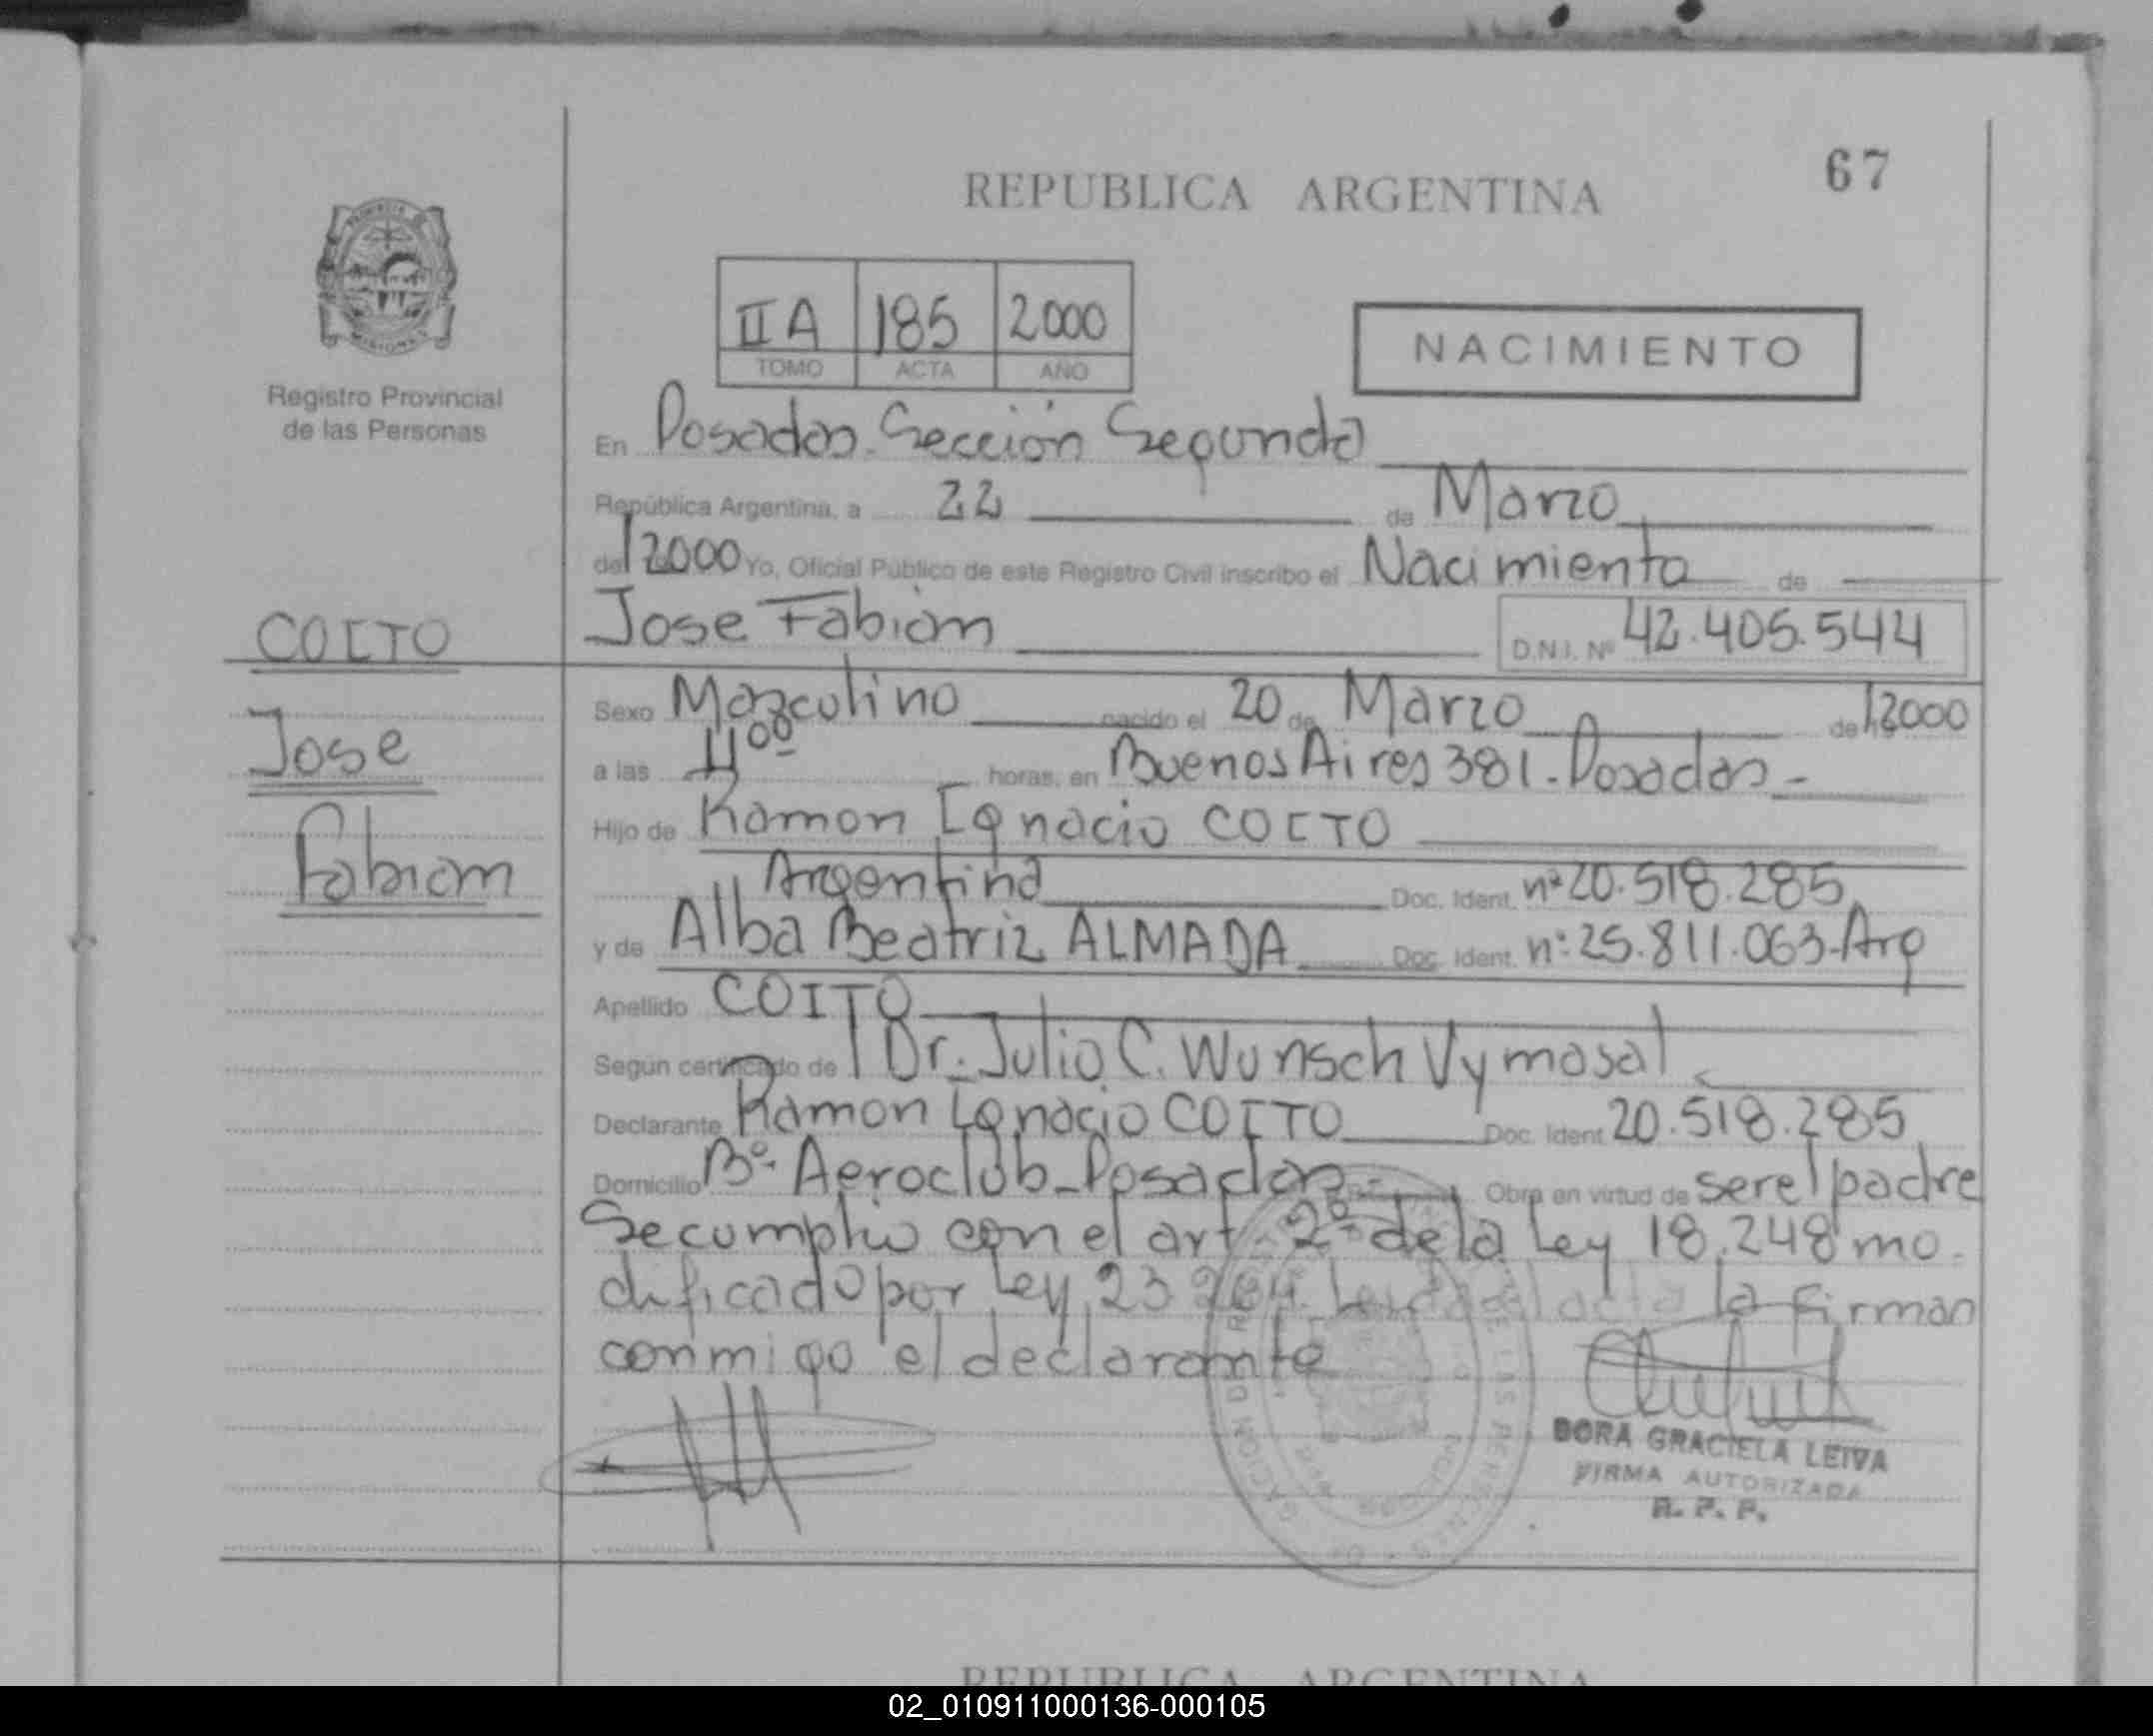 67
REPUBLICA ARGENTINA
II A 185 2000
TOMO ACTA AÑO
NACIMIENTO
Registro Provincial
de las Personas
En Posadas. Sección Segunda
República Argentina, a 22 de Marzo
de 2000 Yo, Oficial Público de este Registro Civil inscribo el Nacimiento de
COITO
Jose Fabian D.N.I. Nº 42.405.544
Sexo Masculino nacido el 20 de Marzo de 2000
Jose
a las 11⁰⁰ horas, en Buenos Aires 381 - Posadas -
Hijo de Ramon Ignacio COITO
Fabian
Argentina Doc. Ident. nº 20.518.285
y de Alba Beatriz ALMADA Doc. Ident. nº 25.811.063-Arg
Apellido COITO
Según certificado de Dr. Julio C. Wunsch Vymasal
Declarante Ramon Ignacio COITO Doc. Ident. 20.518.285
Domicilio Bº Aeroclub - Posadas Obra en virtud de ser el padre
Se cumplio con el art. 2º de la Ley 18.248 mo-
dificado por Ley 23.264. Leida el acta la firman
conmigo el declarante
DORA GRACIELA LEIVA
FIRMA AUTORIZADA
R. P. P.
REPUBLICA ARGENTINA
02_010911000136-000105